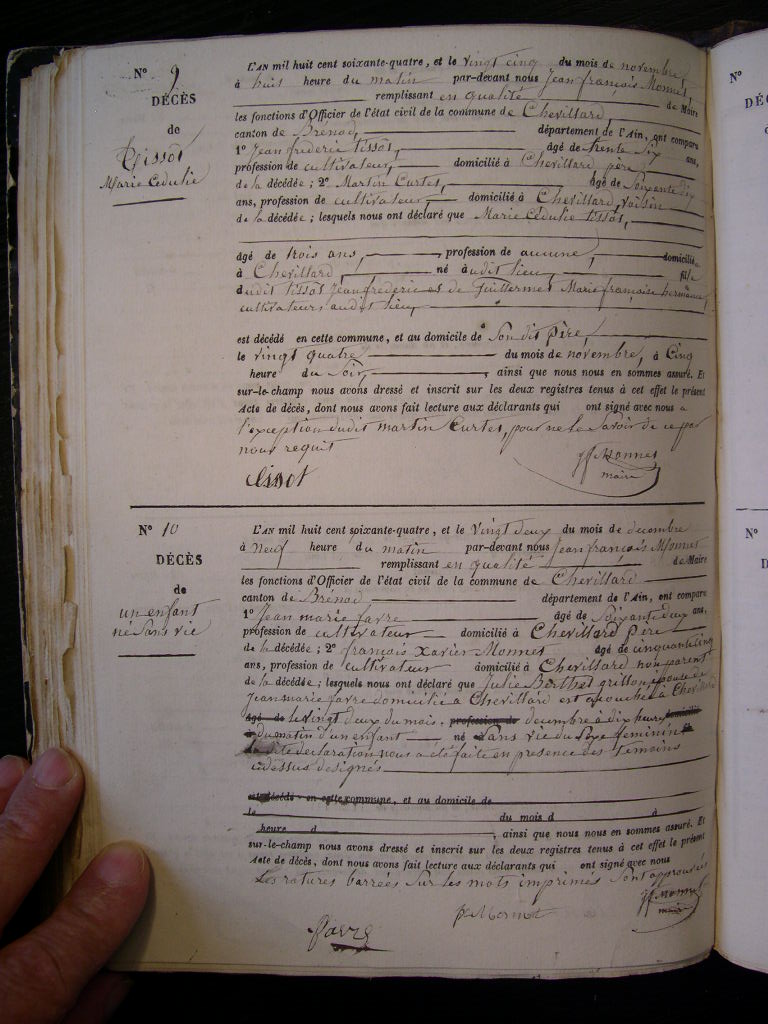 N° 9
DÉCÈS
de
Tissot
Marie Cédulie
L'AN mil huit cent soixante-quatre, et le vingt cinq du mois de novembre,
à huit heure du matin par-devant nous Jean françois Monnet,
remplissant en qualité de Maire
les fonctions d'Officier de l'état civil de la commune de Chevillard,
canton de Brénod, département de l'Ain, ont comparu
1° Jean frederic tissot, âgé de trente six ans,
profession de cultivateur, domicilié à Chevillard père
de la décédée ; 2° Martin Curtes, âgé de Soixante dix
ans, profession de cultivateur domicilié à Chevillard, voisin
de la décédée ; lesquels nous ont déclaré que Marie Cédulie tissot,
âgé de trois ans, profession de aucune, domicilié
à Chevillard, né audit lieu, fille
dudit tissot Jean frederic et de Guillermet Marie françoise
cultivateurs audit lieu,
est décédé en cette commune, et au domicile de Son dit Père,
le vingt quatre du mois de novembre, à Cinq
heure du Soir, ainsi que nous nous en sommes assuré. Et
sur-le-champ nous avons dressé et inscrit sur les deux registres tenus à cet effet le présent
Acte de décès, dont nous avons fait lecture aux déclarants qui ont signé avec nous a
l'exception dudit martin Curtes, pour ne le Savoir de ce par
nous requit
Tissot
Jf Monnet
maire
N° 10
DÉCÈS
de
un enfant
né Sans vie
L'AN mil huit cent soixante-quatre, et le Vingt deux du mois de decembre
à Neuf heure du matin par-devant nous Jean françois Monnet
remplissant en qualité de Maire
les fonctions d'Officier de l'état civil de la commune de Chevillard
canton de Brénod département de l'Ain, ont comparu
1° Jean marie favre âgé de Soixante deux ans,
profession de cultivateur domicilié à Chevillard Père
de la décédée ; 2° françois Xavier Monnet âgé de cinquante cinq
ans, profession de cultivateur domicilié à Chevillard non parent
de la décédée ; lesquels nous ont déclaré que Julie Berthet grillon, épouse de
Jean marie favre domiciliée à Chevillard est accouchée à Chevillard
âgé de le vingt deux du mois, profession de decembre à dix heures domicilié
à du matin d'un enfant né Sans vie du Sexe feminin
la dite declaration nous a été faite en presence des temoins
cidessus designés
est décédé en cette commune, et au domicile de
le du mois d à
heure d , ainsi que nous nous en sommes assuré. Et
sur-le-champ nous avons dressé et inscrit sur les deux registres tenus à cet effet le présent
Acte de décès, dont nous avons fait lecture aux déclarants qui ont signé avec nous
Les ratures barrées Sur les mots imprimés Sont approuvées
Jf Monnet
maire
favre
N°
N°